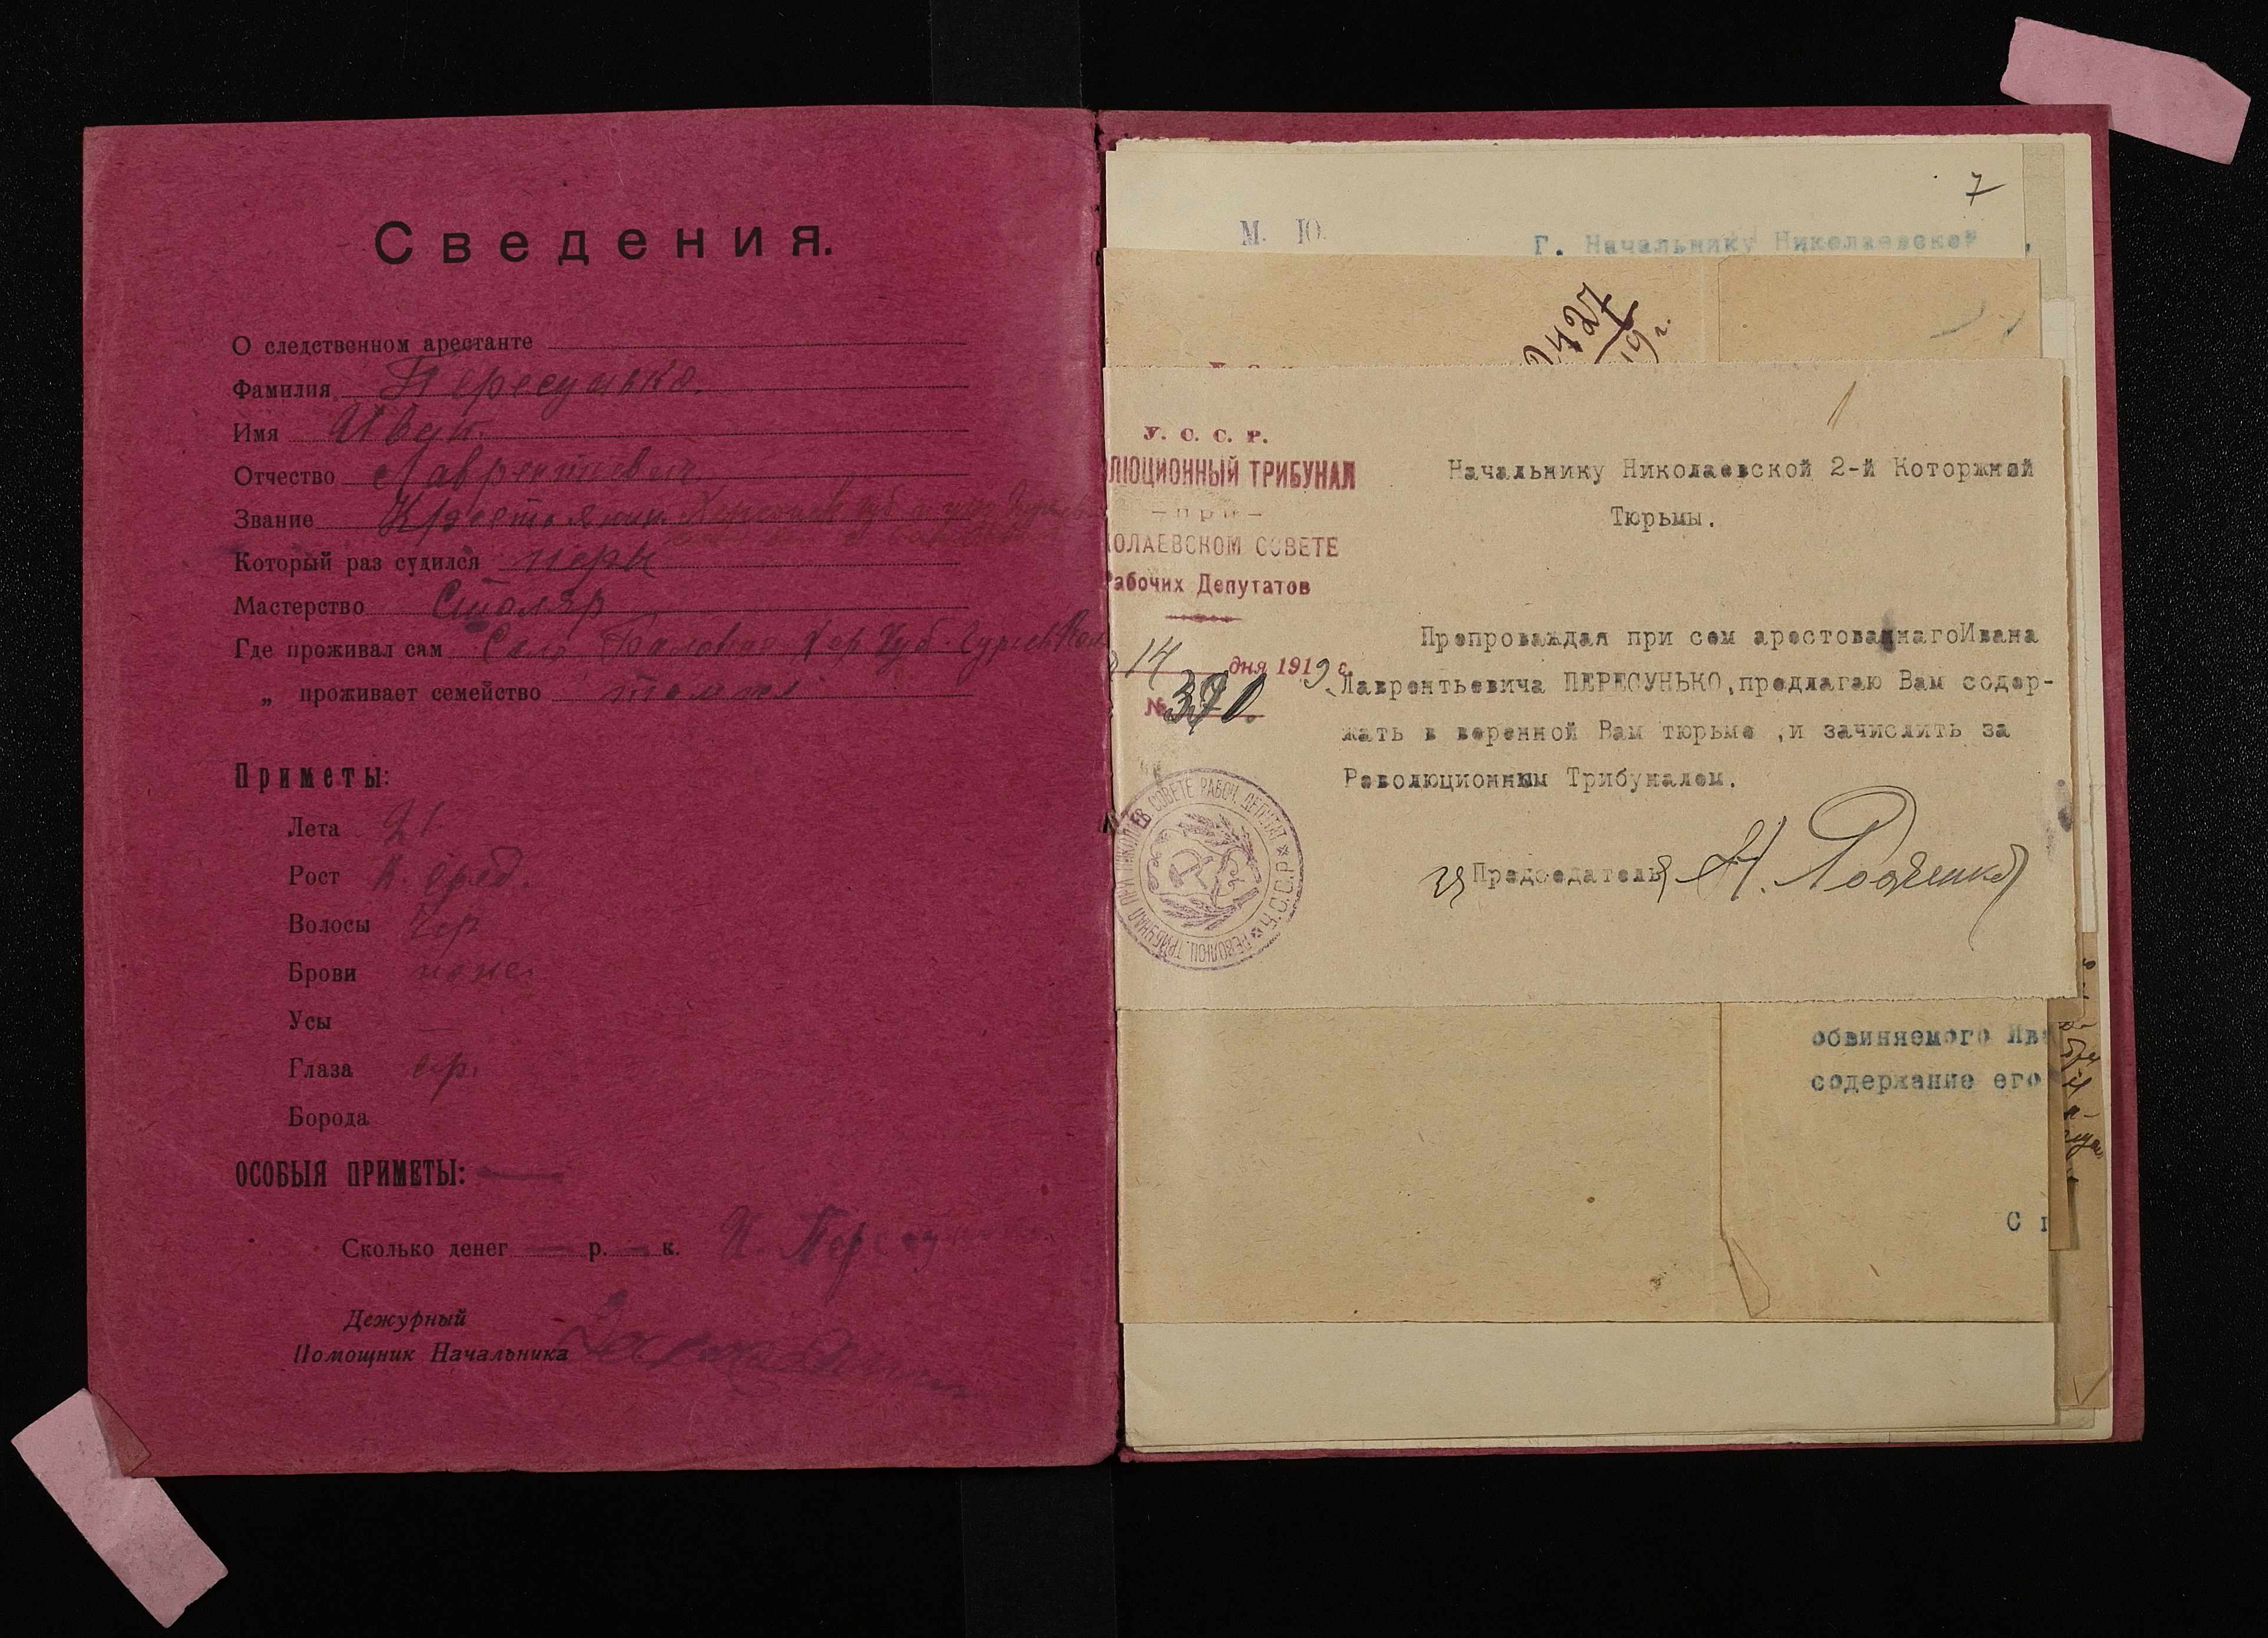 Сведения.
О следственном арестанте
Фамилия Пересунько.
Имя Иван.
Отчество Лаврентьевич.
Звание Крестьянин Херсонск губ
Который раз судился перв
Мастерство Столяр
Где проживал сам Село Баловное Хер Губ Гурьев Вол
„ проживает семейство
Приметы:
Лета 21
Рост н. сред.
Волосы чер
Брови
Усы
Глаза сер.
Борода
ОСОБЫЯ ПРИМЕТЫ: —
Сколько денег — р. — к. И. Пересунько
Дежурный
Помощник Начальника
7
М. Ю.
Г. Начальнику Николаевской
2427
19 г.
1
У. С. С. Р.
ЛЮЦИОННЫЙ ТРИБУНАЛ
— при —
КОЛАЕВСКОМ СОВЕТЕ
абочих Депутатов
14 дня 1919 г.
№ 390
Начальнику Николаевской 2-й Которжной
Тюрьмы.
Препровождая при сем арестованнагоИвана
Лаврентьевича ПЕРЕСУНЬКО,предлагаю Вам содер-
жать в веренной Вам тюрьме ,и зачислить за
Революционным Трибуналом.
Председателя
РЕВОЛЮЦ. ТРИБУНАЛ ПРИ НИКОЛАЕВ СОВЕТЕ РАБОЧ. ДЕПУТАТ * У.С.С.Р. *
обвиняемого Ив
содержание его
С